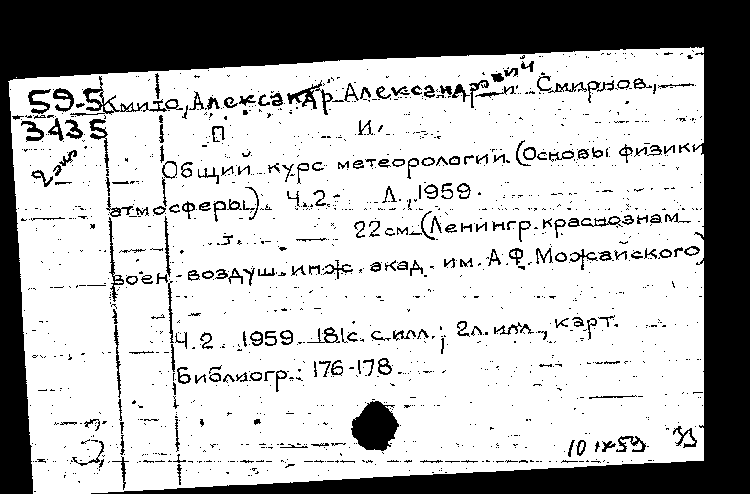 59-5 Кмито, Александр Александрович и Смирнов,
3435 П И.
2 экз
Общий курс метеорологии (Основы физики
атмосферы). Ч.2- Л., 1959.
т. 22 см (Ленингр. краснознам
воен-воздуш. инж. акад. им. А.Ф. Можайского)
Ч.2 1959 181 с. с илл.; 2 л. илл., карт.
Библиогр.: 176-178
10 IX 59